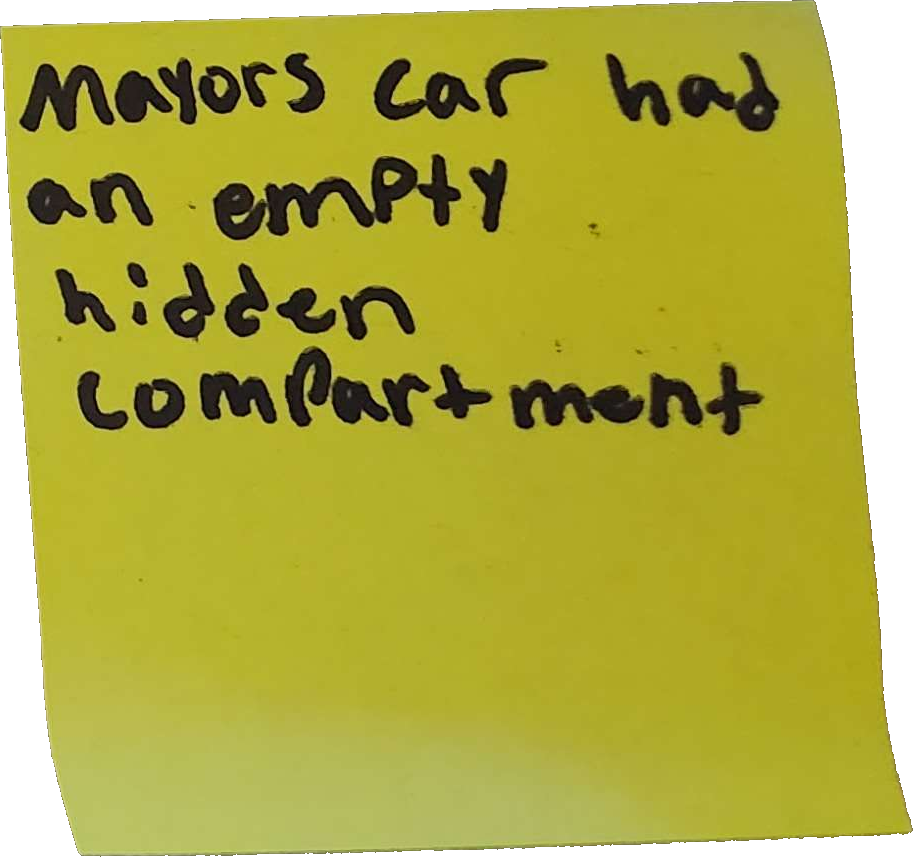 Mayors car had
an empty
hidden
compartment